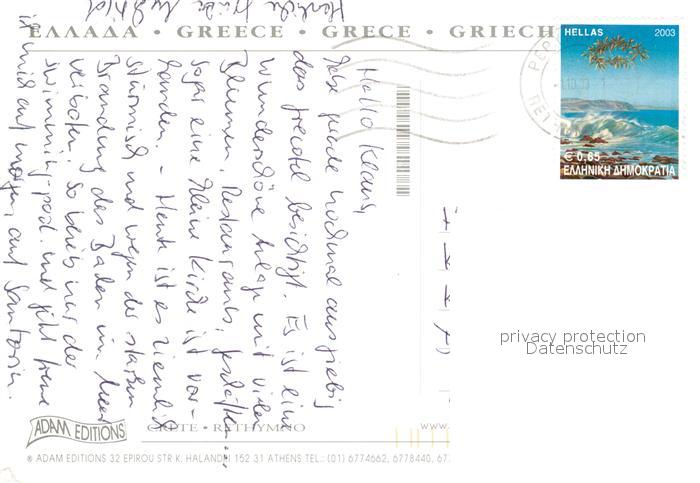 ΕΛΛΑΔΑ • GREECE • GRECE • GRIECH
HELLAS 2003
€ 0,65
ΕΛΛΗΝΙΚΗ ΔΗΜΟΚΡΑΤΙΑ
Hallo Klaus,
habe gerade nochmal ausgiebig
das Grecotel besichtigt. Es ist eine
wunderschöne Anlage mit vielen
Blumen, Restaurants, Geschäften...
sogar eine kleine Kirche ist vor-
handen. - Heute ist es ziemlich
stürmisch und wegen der starken
Brandung das Baden im Meer
verboten. So blieb nur der
swimming-pool. und jetzt freue
ich mich auf morgen, auf Santorin.
Herzliche Grüße
privacy protection
Datenschutz
ADAM EDITIONS
CRETE - RETHYMNO
www.
® ADAM EDITIONS 32 EPIROU STR K. HALANDRI 152 31 ATHENS TEL.: (01) 6774662, 6778440, 67